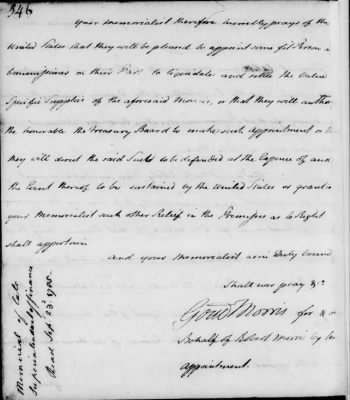 346
your Memorialist therefore humbly prays of the
United States that they will be pleased to appoint some fit Person a
Commissioner on their Part to liquidate and settle the Value
Specific Supplies of the aforesaid Monies, or that they will autho
the honorable the Treasury Board to make such appointment or th
they will direct the said Suits to be defended at the Expence of and
the Event thereof to be sustained by the United States or grant a
your Memorialist such other Relief in the Premises as to Right
shall appertain
and your Memorialist as in Duty bound
Shall ever pray &c.
Gouv Morris for & o
Behalf of Robert Morris by
appointment.
Memorial of late
Superintendant of finance
Read Sep. 23d 1785